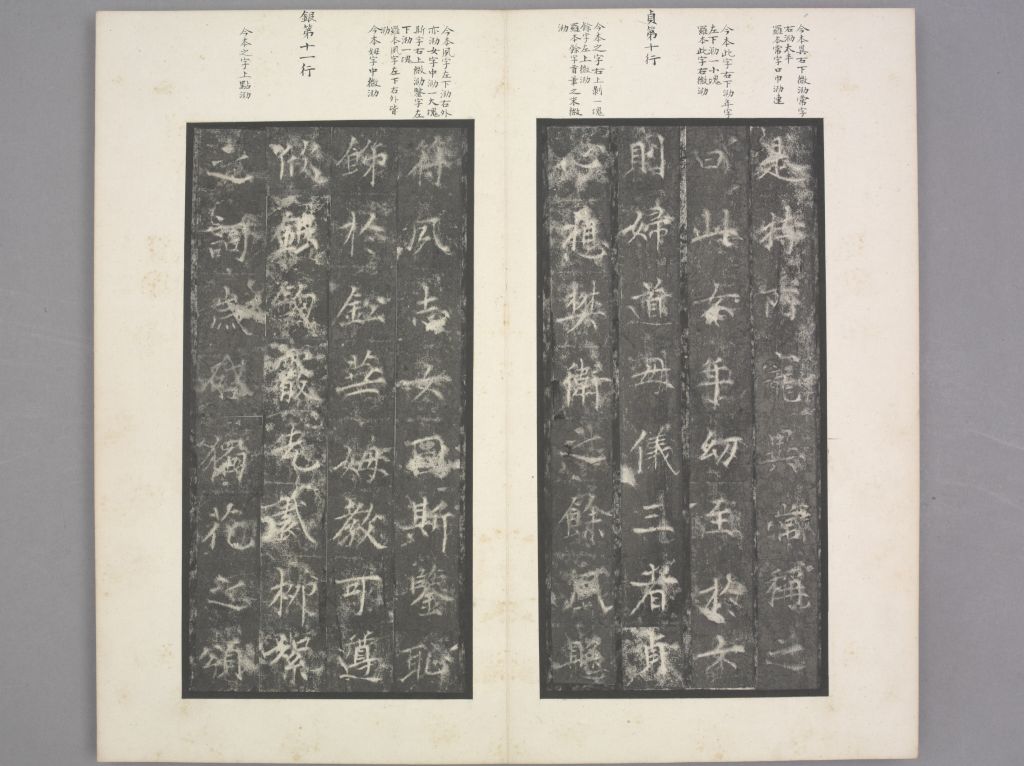 今本異右下微泐常字
右泐太半
羅本常字口巾泐連
今本此字右下泐年字
左下泐一小塊
羅本此字右微泐
貞第十行
今本之字右上剝一塊
餘字左上微泐
羅本餘字首畫之末微
泐
是特所寵異常稱之
曰此女年幼至於大
則婦道母儀三者貞
心想樊衛之餘風既
今本夙字左下泐右外
亦泐女字中泐一大塊
斯字右上微泐鑒字左
下泐一塊
羅本夙字左下右外皆
泐
今本姆字中微泐
銀第十一行
今本之字上點泐
符夙志女圖斯鑒恥
飾於鉛華姆教可遵
銀鉤柳絮
之詞獨花之頌